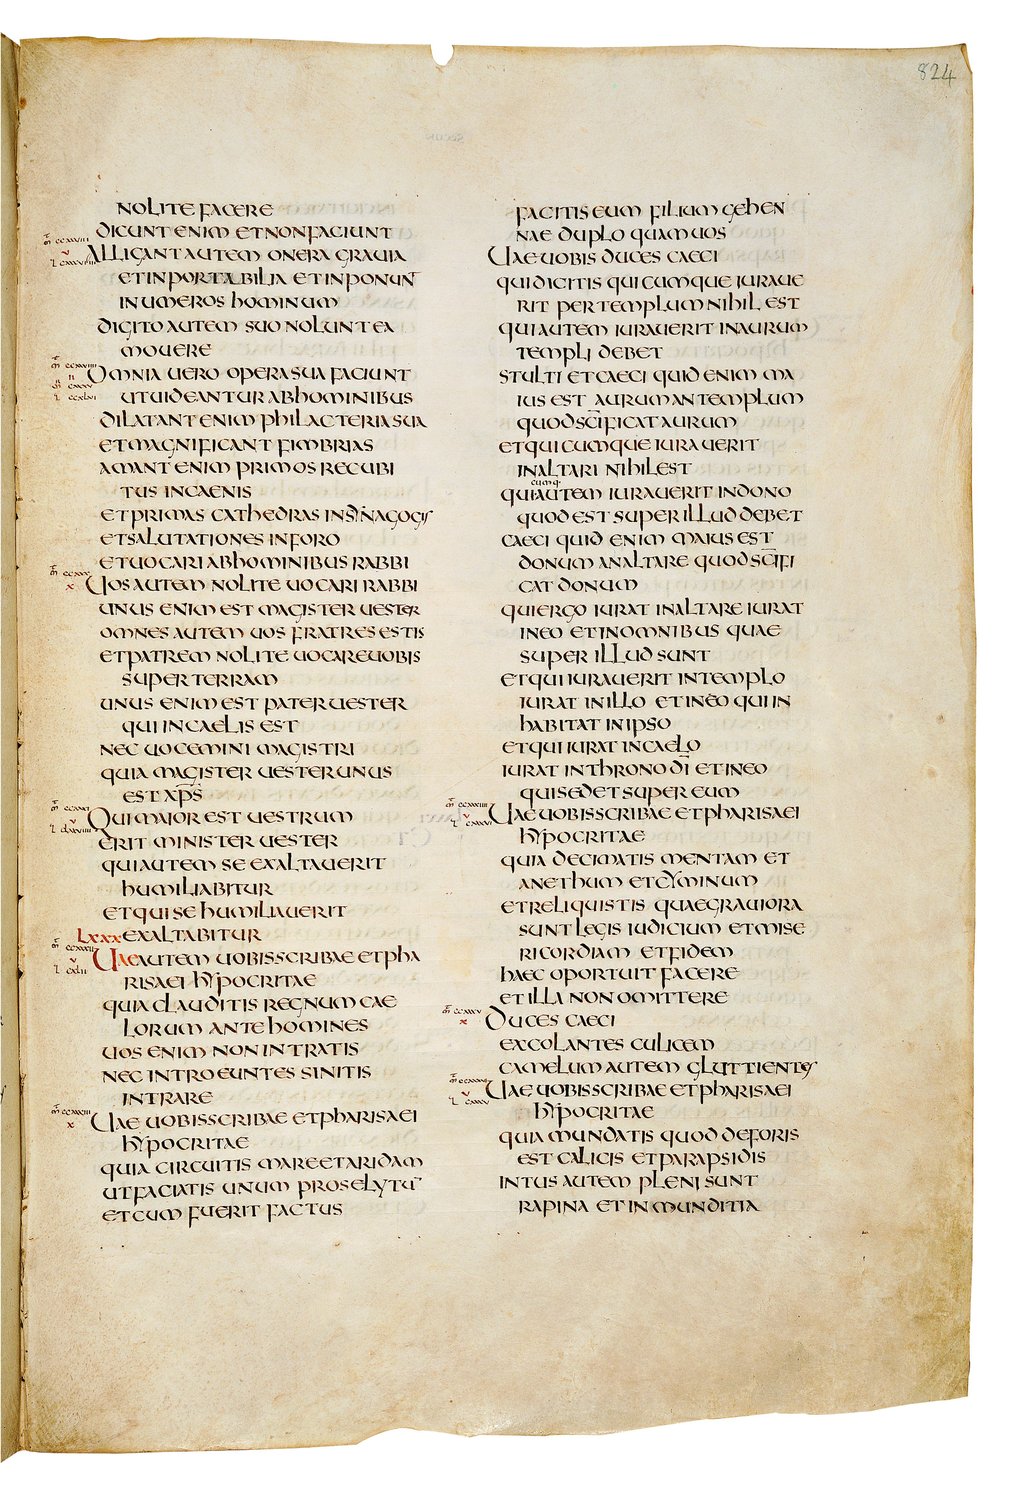 824
NOLITE FACERE
DICUNT ENIM ET NON FACIUNT
ALLIGANT AUTEM ONERA GRAVIA
ET INPORTABILIA ET INPONUNT
IN UMEROS HOMINUM
DIGITO AUTEM SUO NOLUNT EA
MOUERE
OMNIA UERO OPERA SUA FACIUNT
UT UIDEANTUR AB HOMINIBUS
DILATANT ENIM PHILACTERIA SUA
ET MAGNIFICANT FIMBRIAS
AMANT ENIM PRIMOS RECUBI
TUS IN CAENIS
ET PRIMAS CATHEDRAS IN SYNAGOGIS
ET SALUTATIONES IN FORO
ET UOCARI AB HOMINIBUS RABBI
UOS AUTEM NOLITE UOCARI RABBI
UNUS ENIM EST MAGISTER UESTER
OMNES AUTEM UOS FRATRES ESTIS
ET PATREM NOLITE UOCARE UOBIS
SUPER TERRAM
UNUS ENIM EST PATER UESTER
QUI IN CAELIS EST
NEC UOCEMINI MAGISTRI
QUIA MAGISTER UESTER UNUS
EST XP̅S̅
QUI MAIOR EST UESTRUM
ERIT MINISTER UESTER
QUI AUTEM SE EXALTAUERIT
HUMILIABITUR
ET QUI SE HUMILIAUERIT
LXXX EXALTABITUR
UAE AUTEM UOBIS SCRIBAE ET PHA
RISAEI HYPOCRITAE
QUIA CLAUDITIS REGNUM CAE
LORUM ANTE HOMINES
UOS ENIM NON INTRATIS
NEC INTROEUNTES SINITIS
INTRARE
UAE UOBIS SCRIBAE ET PHARISAEI
HYPOCRITAE
QUIA CIRCUITIS MARE ET ARIDAM
UT FACIATIS UNUM PROSELYTU̅
ET CUM FUERIT FACTUS
FACITIS EUM FILIUM GEHEN
NAE DUPLO QUAM UOS
UAE UOBIS DUCES CAECI
QUI DICITIS QUICUMQUE IURAUE
RIT PER TEMPLUM NIHIL EST
QUI AUTEM IURAUERIT IN AURUM
TEMPLI DEBET
STULTI ET CAECI QUID ENIM MA
IUS EST AURUM AN TEMPLUM
QUOD SC̅IFICAT AURUM
ET QUICUMQUE IURAUERIT
IN ALTARI NIHIL EST
cumq·
QUI AUTEM IURAUERIT IN DONO
QUOD EST SUPER ILLUD DEBET
CAECI QUID ENIM MAIUS EST
DONUM AN ALTARE QUOD SC̅IFI
CAT DONUM
QUI ERGO IURAT IN ALTARE IURAT
IN EO ET IN OMNIBUS QUAE
SUPER ILLUD SUNT
ET QUI IURAUERIT IN TEMPLO
IURAT IN ILLO ET IN EO QUI IN
HABITAT IN IPSO
ET QUI IURAT IN CAELO
IURAT IN THRONO DI̅ ET IN EO
QUI SEDET SUPER EUM
UAE UOBIS SCRIBAE ET PHARISAEI
HYPOCRITAE
QUIA DECIMATIS MENTAM ET
ANETHUM ET CYMINUM
ET RELIQUISTIS QUAE GRAUIORA
SUNT LEGIS IUDICIUM ET MISE
RICORDIAM ET FIDEM
HAEC OPORTUIT FACERE
ET ILLA NON OMITTERE
DUCES CAECI
EXCOLANTES CULICEM
CAMELUM AUTEM GLUTTIENTES
UAE UOBIS SCRIBAE ET PHARISAEI
HYPOCRITAE
QUIA MUNDATIS QUOD DEFORIS
EST CALICIS ET PARAPSIDIS
INTUS AUTEM PLENI SUNT
RAPINA ET INMUNDITIA